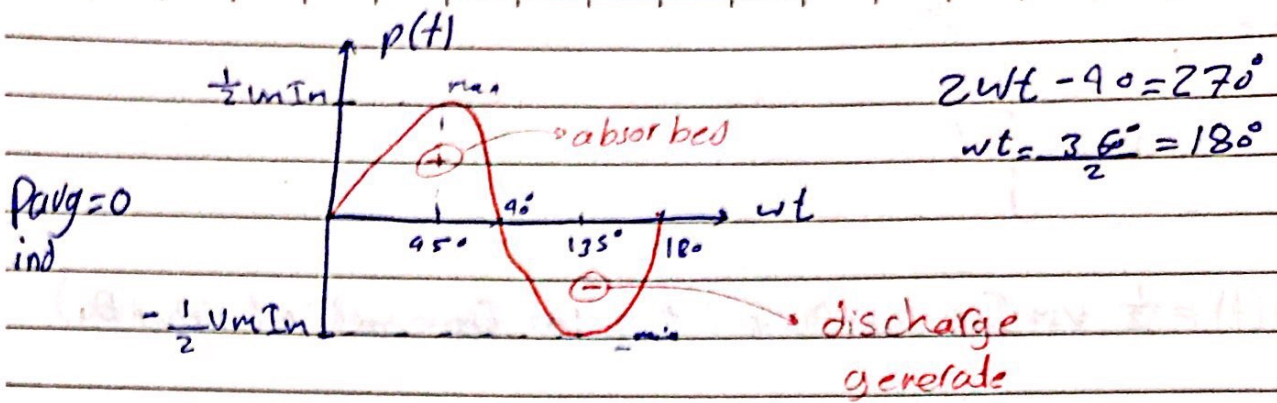 p(t)
½ VmIm
max
absorbed
+
2wt - 90 = 270°
wt = 360°/2 = 180°
Pavg=0
ind
90°
wt
45°
135°
180
-
- ½ VmIm
min
discharge
generate